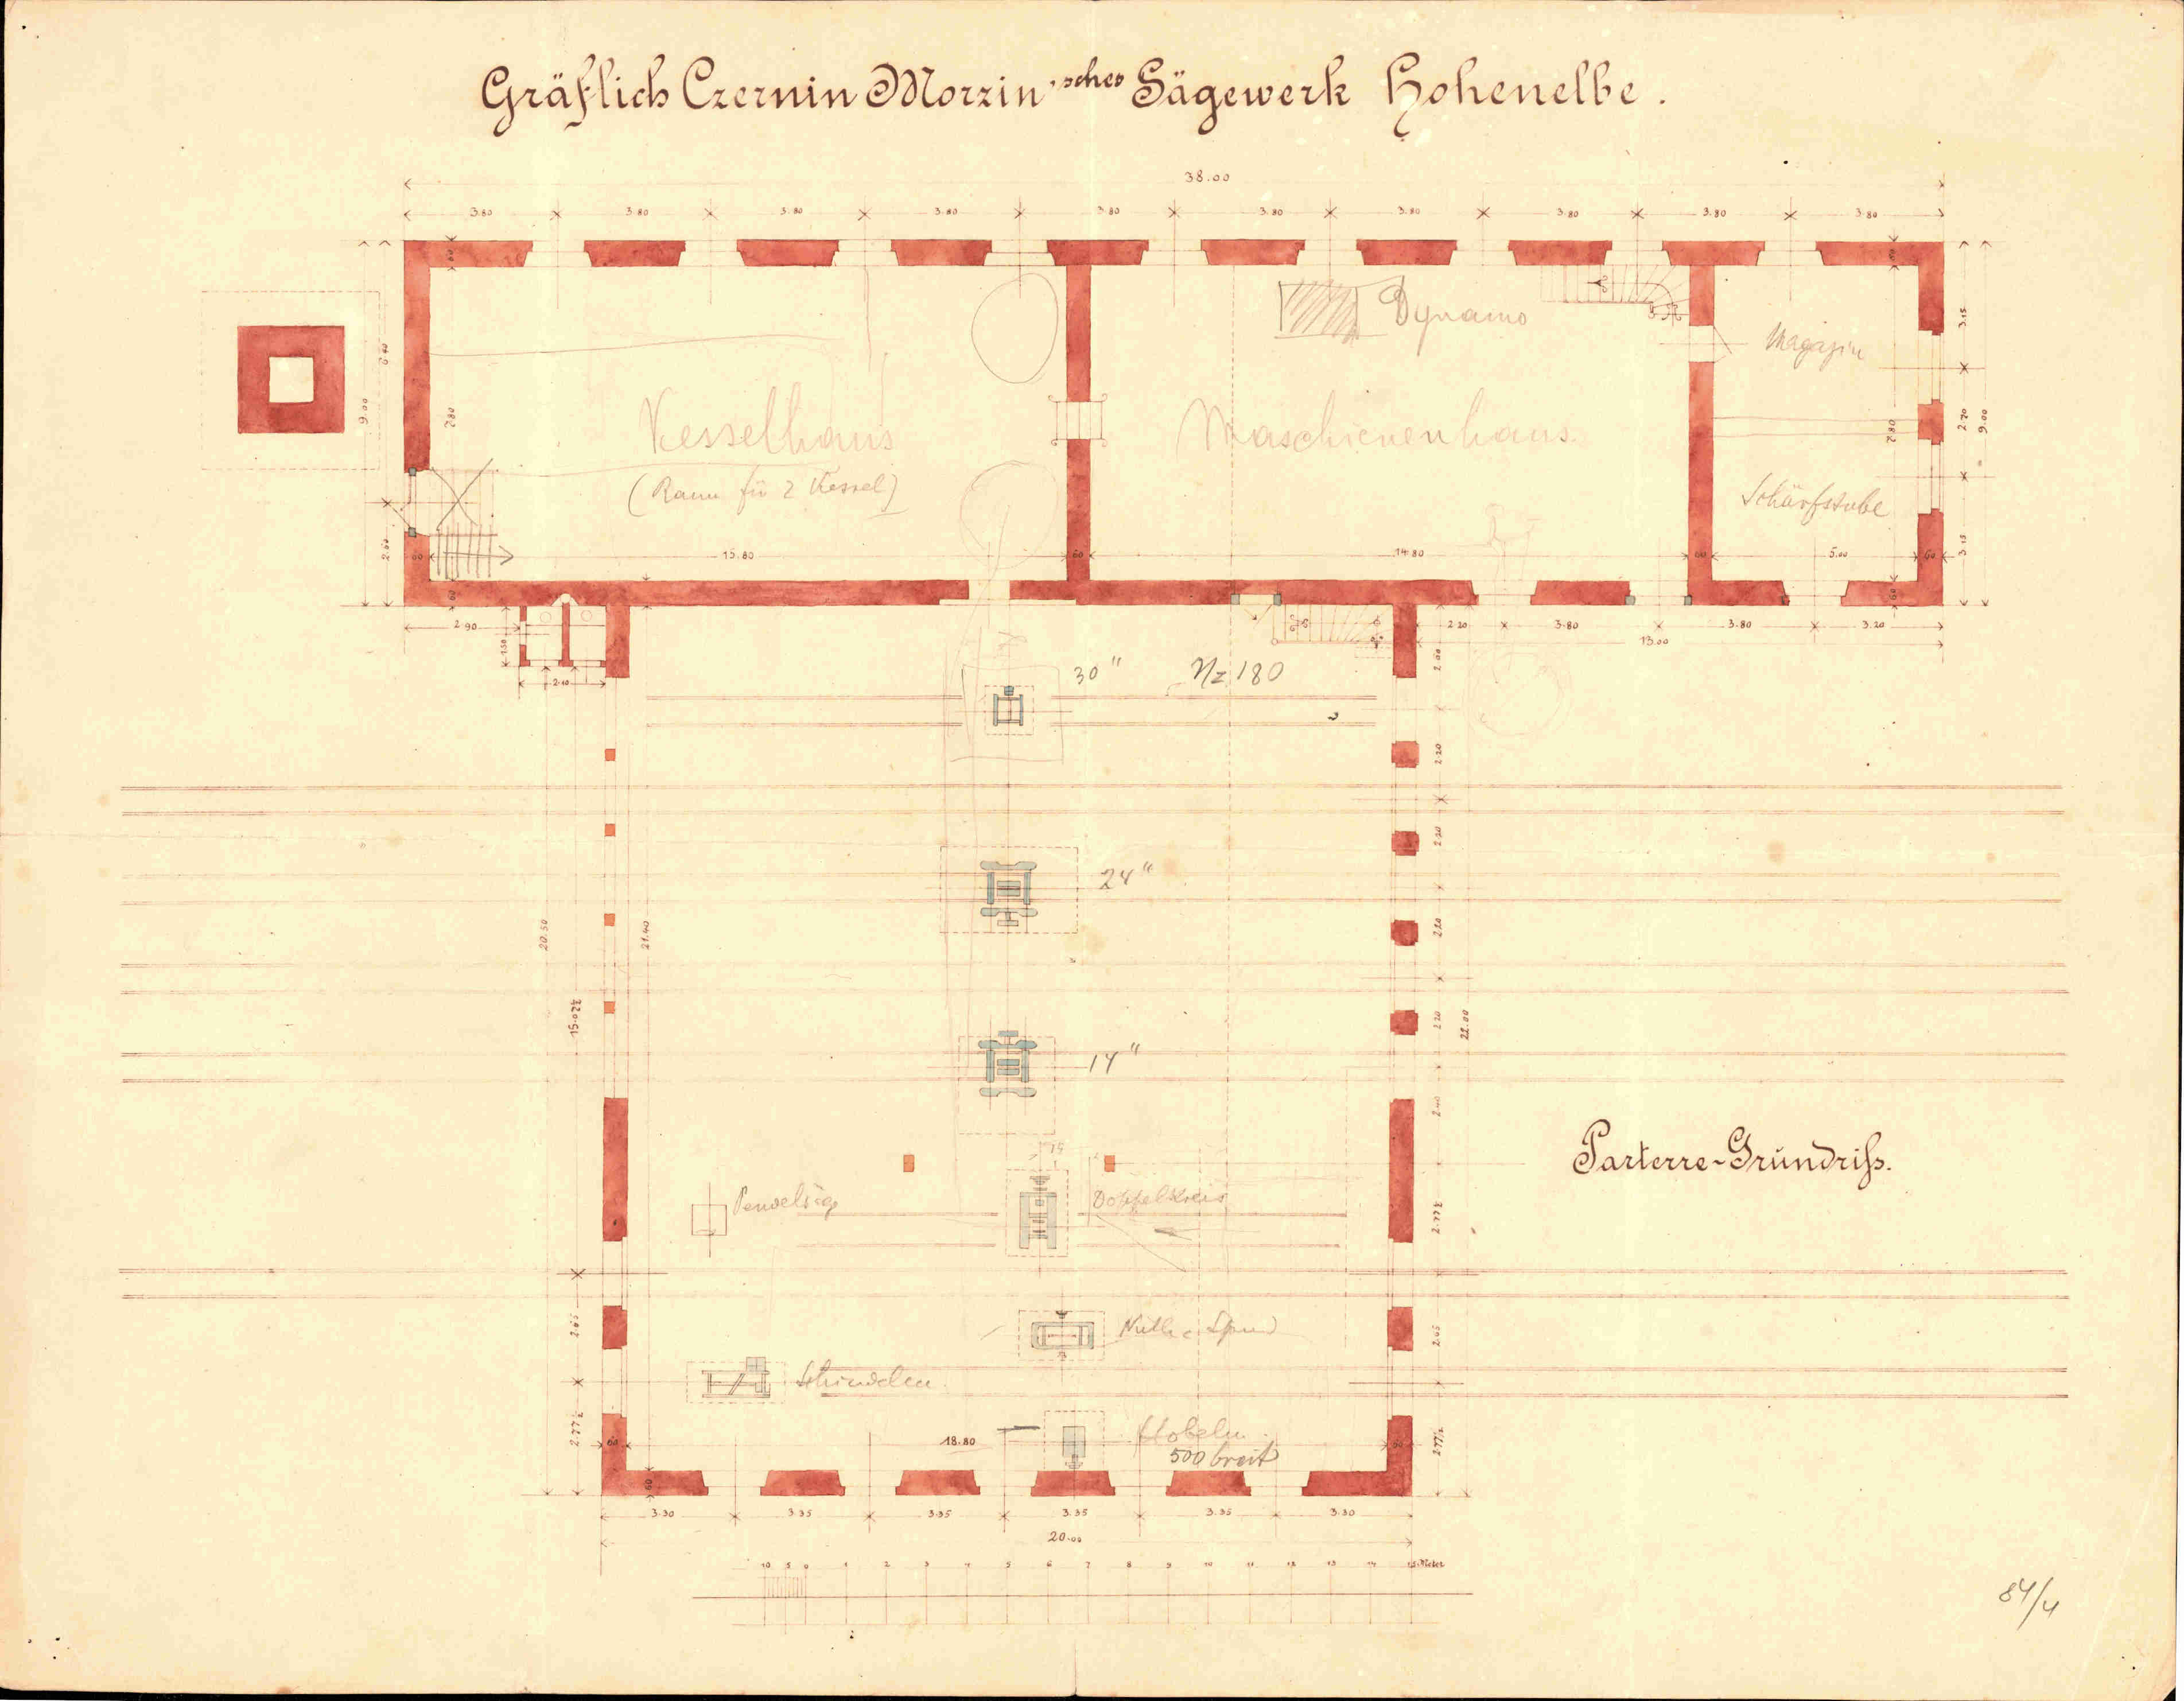 Gräflich Czernin Morzin'sches Sägewerk Hohenelbe.
38.00
3.80 3.80 3.80 3.80 3.80 3.80 3.80 3.80 3.80 3.80
Dynamo
Magazin
Kesselhaus
Maschienenhaus.
(Raum für 2 Kessel)
Schärfstube
9.00
6.40
7.80
2.60
3.15
2.70
9.00
7.80
3.15
60 15.80 60 14.80 60 5.00 60
2.90
1.50
2.10
2.20 3.80 3.80 3.20
13.00
30" Nz 180
2.60
2.20
2.20
24"
2.20
20.50
21.40
15.02½
2.20
22.00
14"
2.40
Parterre-Grundriss.
Doppelkreis
2.77½
2.65
2.65
Schindeln
Hobeln
500 breit
2.77½
2.77½
60 18.80 60
60
3.30 3.35 3.35 3.35 3.35 3.30
20.00
10 5 0 1 2 3 4 5 6 7 8 9 10 11 12 13 14 15 Meter
84/4